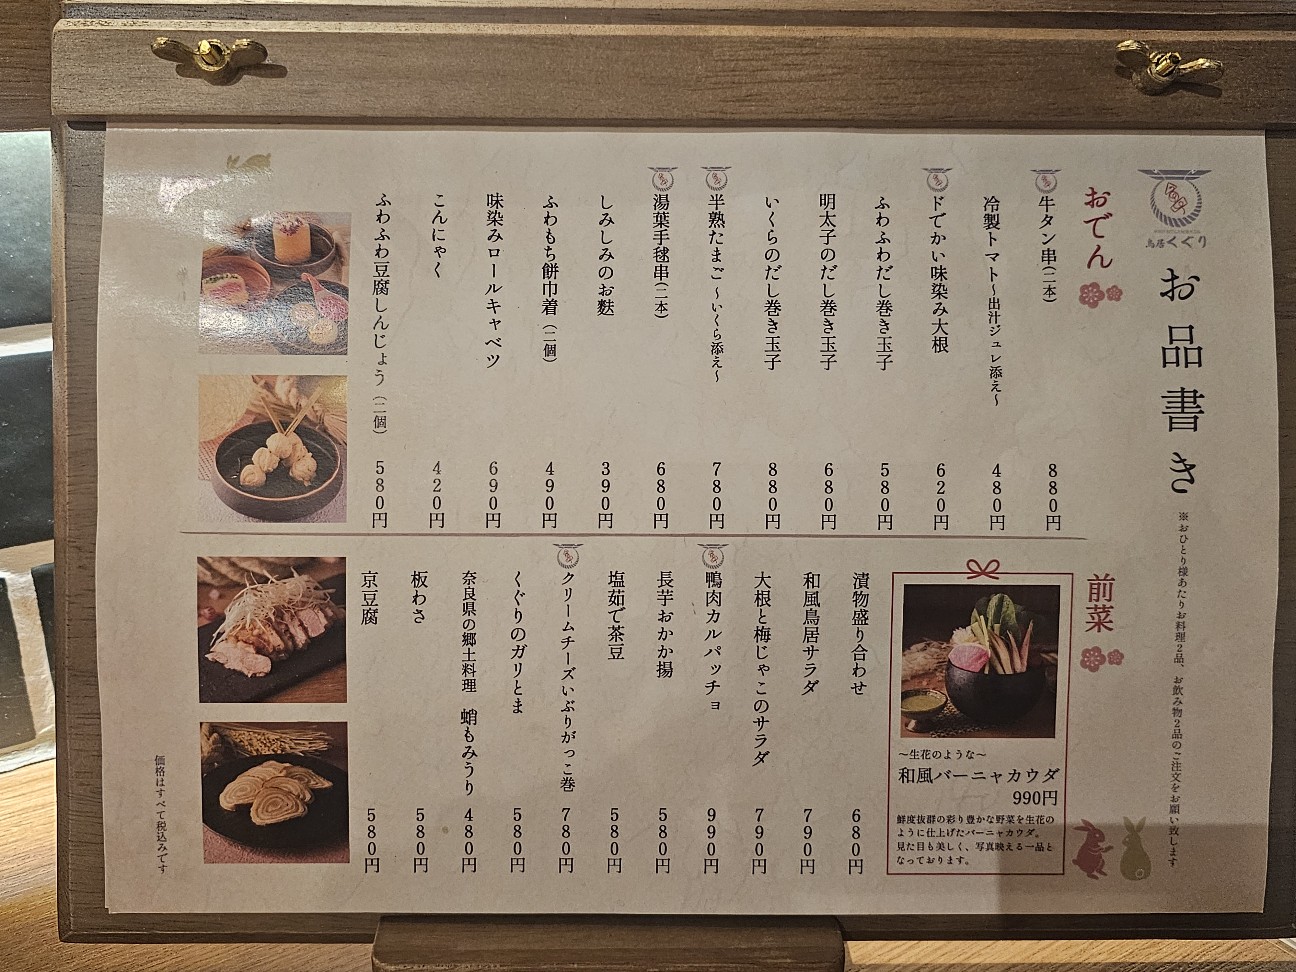 鳥居くぐり
お品書き
※おひとり様あたりお料理2品、お飲み物2品のご注文をお願い致します
おでん
牛タン串(二本) 880円
冷製トマト～出汁ジュレ添え～ 480円
ドでかい味染み大根 620円
ふわふわだし巻き玉子 580円
明太子のだし巻き玉子 680円
いくらのだし巻き玉子 880円
半熟たまご～いくら添え～ 780円
湯葉手毬串(二本) 680円
しみしみのお麩 390円
ふわもち餅巾着(二個) 490円
味染みロールキャベツ 690円
こんにゃく 420円
ふわふわ豆腐しんじょう(二個) 580円
前菜
～生花のような～
和風バーニャカウダ
990円
鮮度抜群の彩り豊かな野菜を生花の
ように仕上げたバーニャカウダ。
見た目も美しく、写真映える一品と
なっております。
漬物盛り合わせ 680円
和風鳥居サラダ 790円
大根と梅じゃこのサラダ 790円
鴨肉カルパッチョ 990円
長芋おかか揚 580円
塩茹で茶豆 580円
クリームチーズいぶりがっこ巻 780円
くぐりのガリとま 580円
奈良県の郷土料理 蛸もみうり 480円
板わさ 580円
京豆腐 580円
価格はすべて税込みです